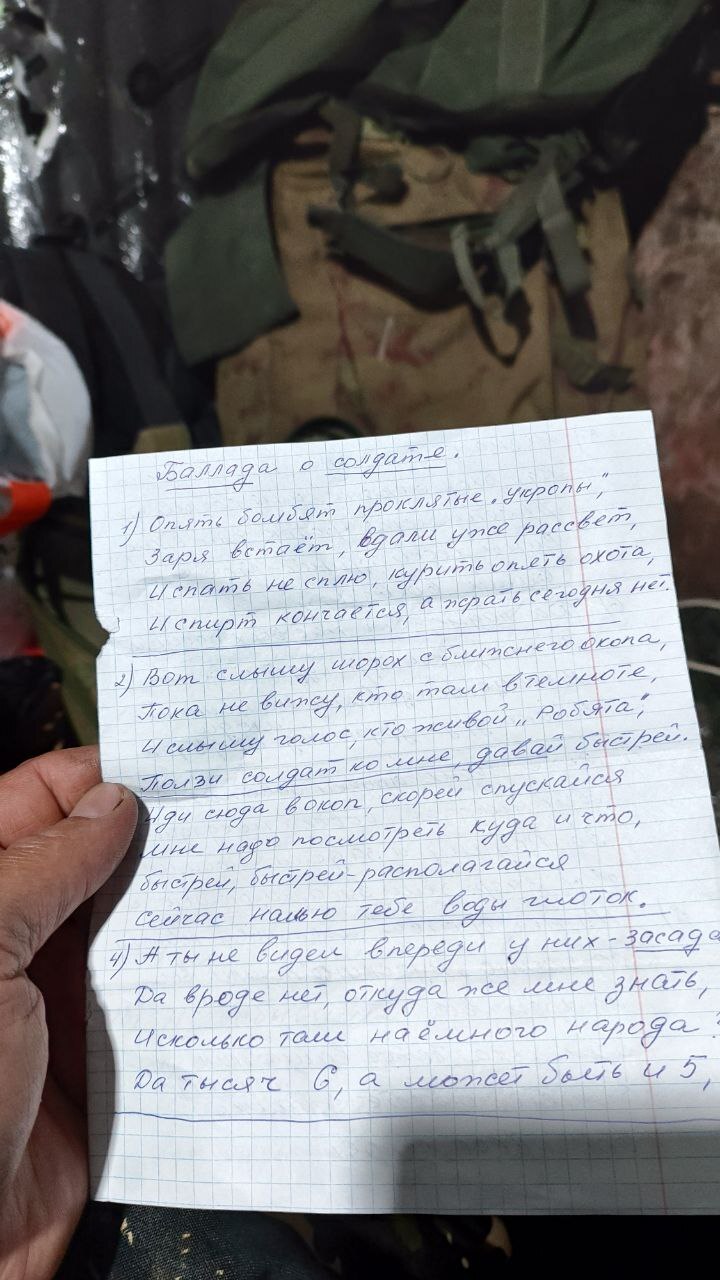 Баллада о солдате.
1) Опять бомбят проклятые „укропы",
Заря встаёт, вдали уже рассвет,
И спать не сплю, курить опять охота,
И спирт кончается, а жрать сегодня нет.
2) Вот слышу шорох с ближнего окопа,
Пока не вижу, кто там в темноте,
И слышу голос, кто живой „робята",
Ползи солдат ко мне, давай быстрей.
Иди сюда в окоп, скорей спускайся
мне надо посмотреть куда и что,
быстрей, быстрей-располагайся
сейчас налью тебе воды глоток.
4) А ты не видел впереди у них-засада
Да вроде нет, откуда же мне знать,
И сколько там наёмного народа?
Да тысяч 6, а может быть и 5,